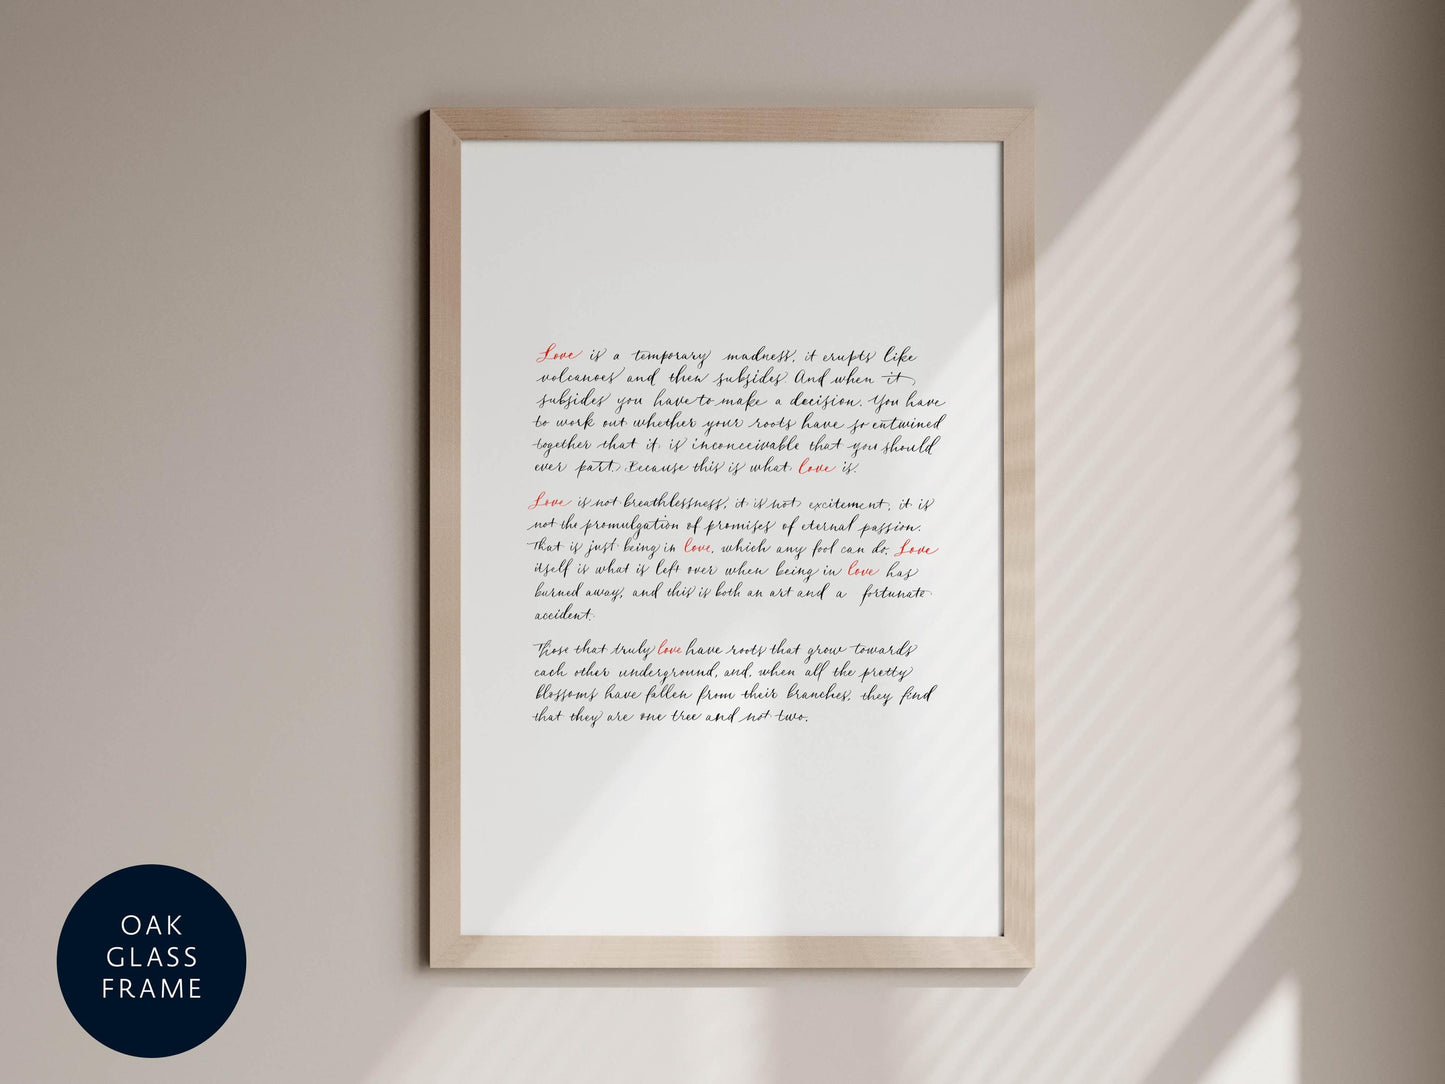 Love is a temporary madness, it erupts like
volcanoes and then subsides. And when it
subsides you have to make a decision. You have
to work out whether your roots have so entwined
together that it is inconceivable that you should
ever part. Because this is what love is.
Love is not breathlessness, it is not excitement, it is
not the promulgation of promises of eternal passion.
That is just being in love, which any fool can do. Love
itself is what is left over when being in love has
burned away, and this is both an art and a fortunate
accident.
Those that truly love have roots that grow towards
each other underground, and, when all the pretty
blossoms have fallen from their branches, they find
that they are one tree and not two.
OAK
GLASS
FRAME